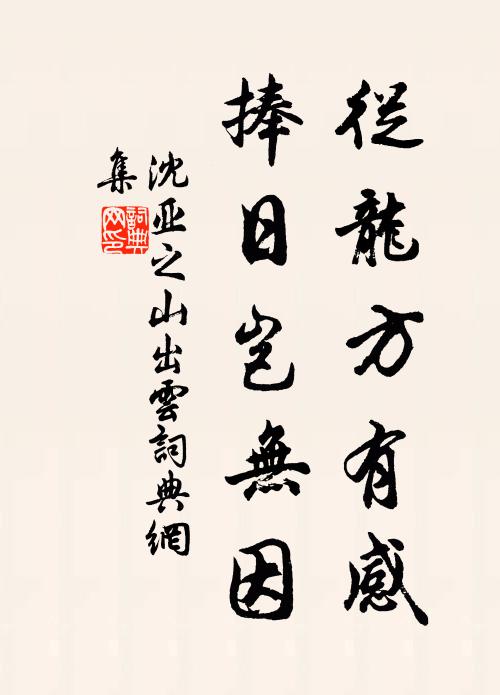 從龍方有感
捧日豈無因
沈亚之山出雲詞典網
集
詞典网印